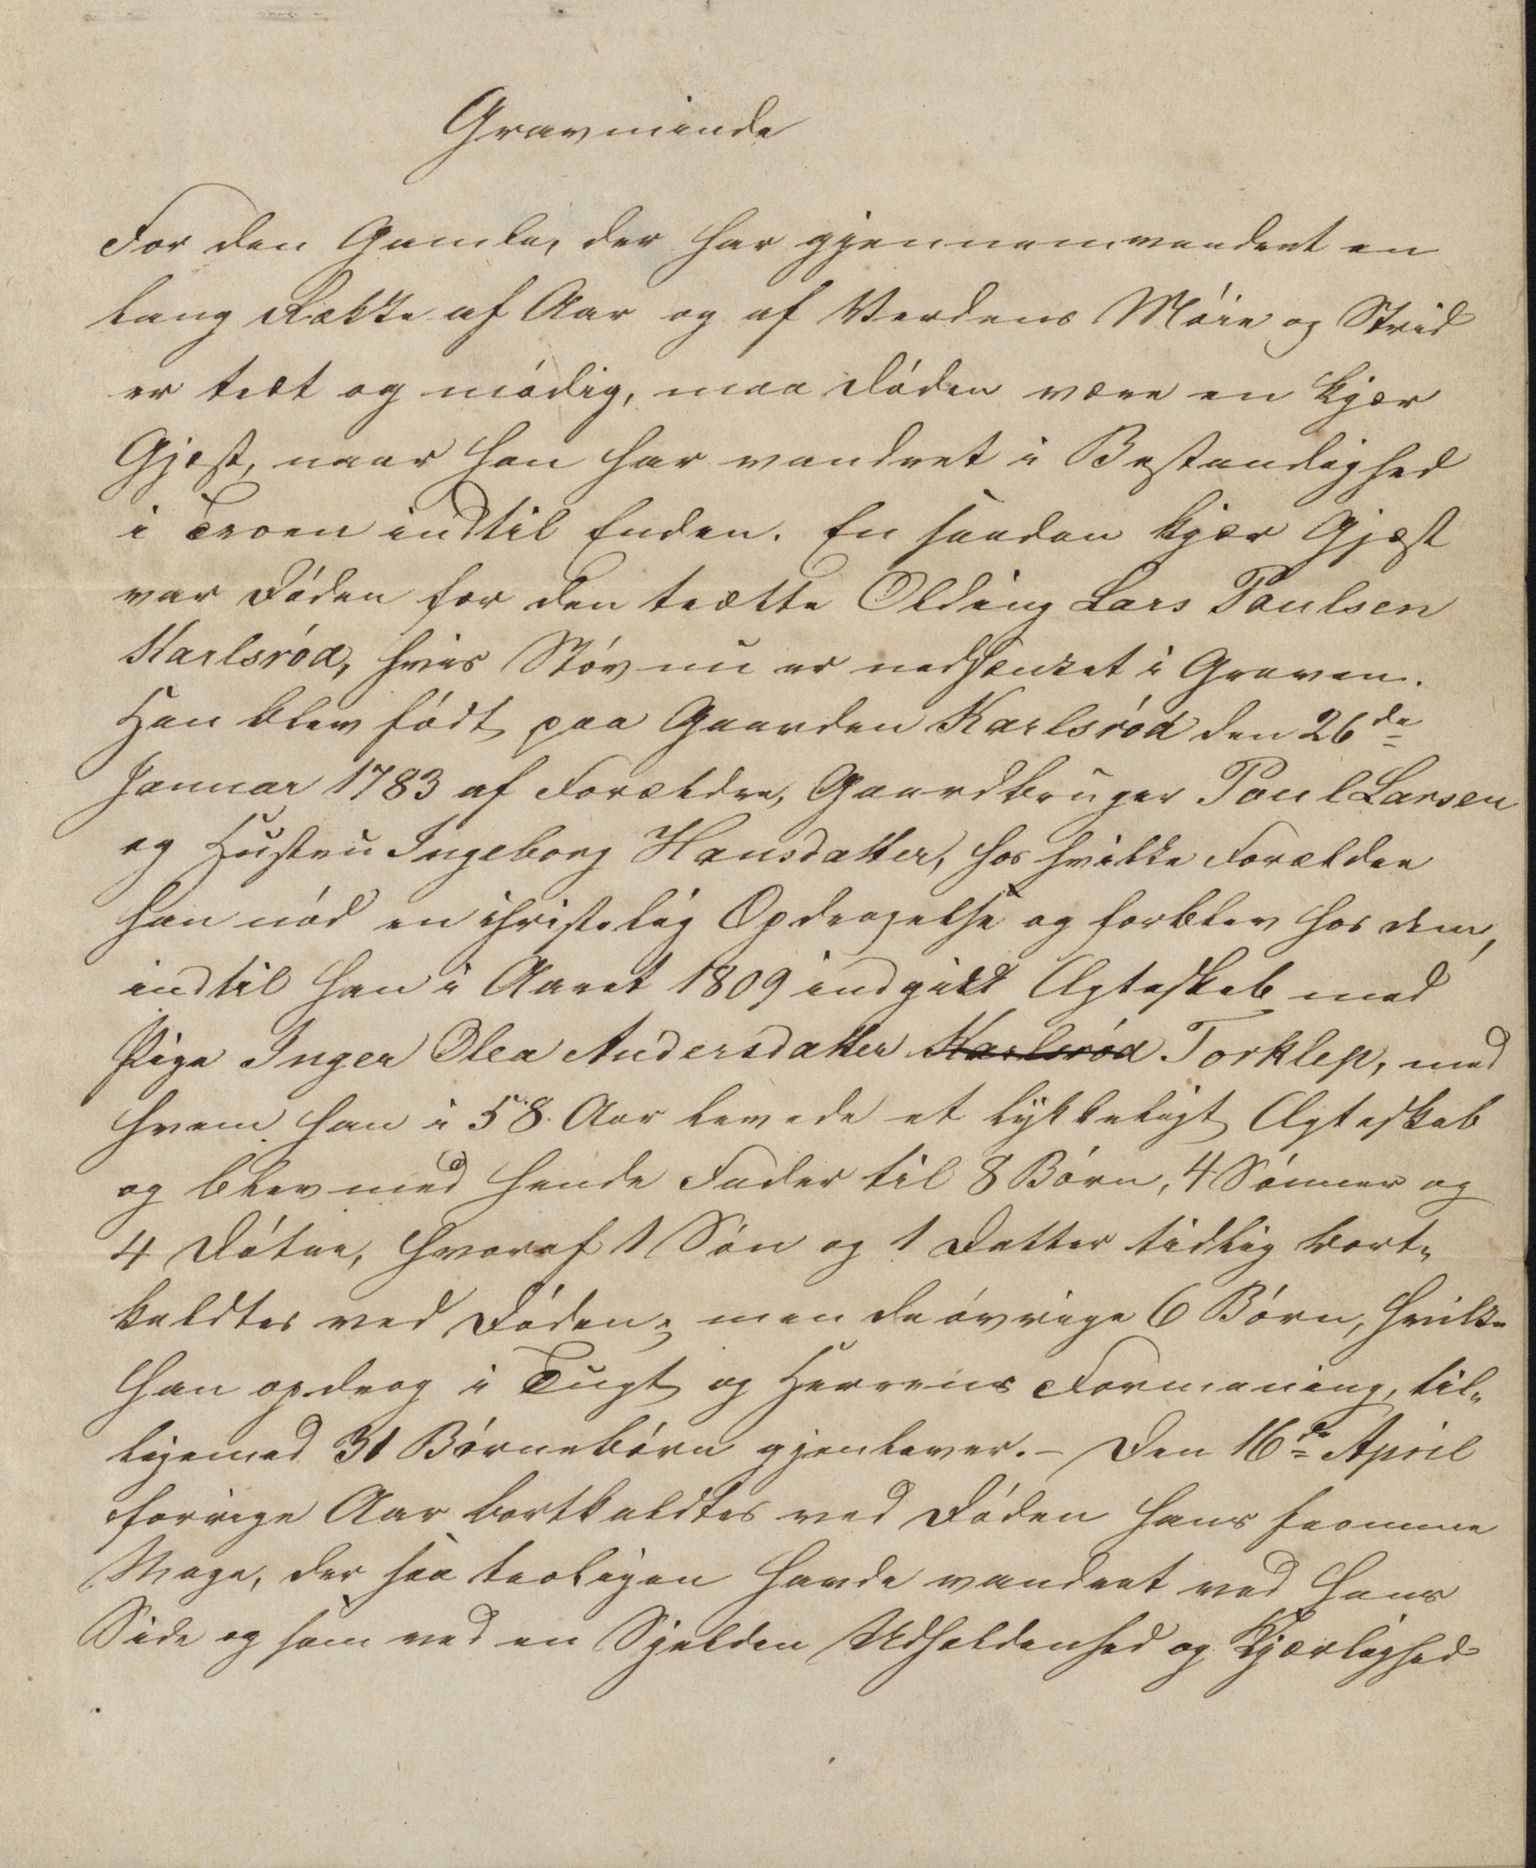 Gravminde
For den Gamle, der har gjennemvandret en
lang Række af Aar og af Verdens Møie og Strid
er træt og mødig, maa Døden være en kjær
Gjæst, naar han har vandret i Bestandighed
i Troen indtil Enden. En saadan kjær Gjæst
var Døden for den trætte Olding Lars Paulsen
Karlsrød, hvis Støv nu er nedsænket i Graven.
Han blev født paa Gaarden Karlsrød den 26de
Januar 1783 af Forældre, Gaardbruger Poul Larsen
og Hustru Ingeborg Hansdatter, hos hvilke Forældre
han nød en christelig Opdragelse og forblev hos dem,
indtil han i Aaret 1809 indgikk Ægteskab med
Pige Inger Olea Andersdatter Karlsrød Torklep, med
hvem han i 58 Aar levede et lykkeligt Ægteskab
og blev med hende Fader til 8 Børn, 4 Sønner og
4 Døtre, hvoraf 1 Søn og 1 Datter tidlig bort-
kaldtes ved Døden; men de øvrige 6 Børn, hvilke
han opdrog i Tugt og Herrens Formaning, til-
ligemed 31 Børnebørn gjenlever. – Den 16de April
forrige Aar bortkaldtes ved Døden hans fromme
Mage, der saa troligen havde vandret ved hans
Side og som ved en Sjelden Udholdenhed og Kjærlighed